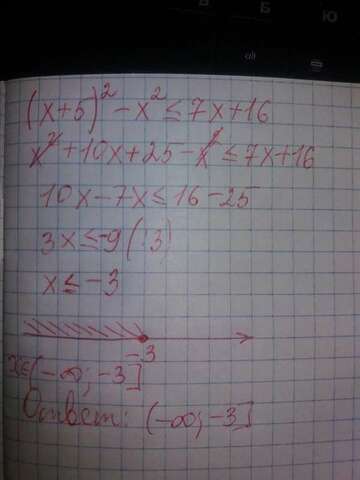 Б
Ю
(x+5)² - x² ≤ 7x+16
x² + 10x + 25 - x² ≤ 7x+16
10x - 7x ≤ 16 - 25
3x ≤ -9 (:3)
x ≤ -3
-3
x∈(-∞; -3]
Ответ: (-∞; -3]